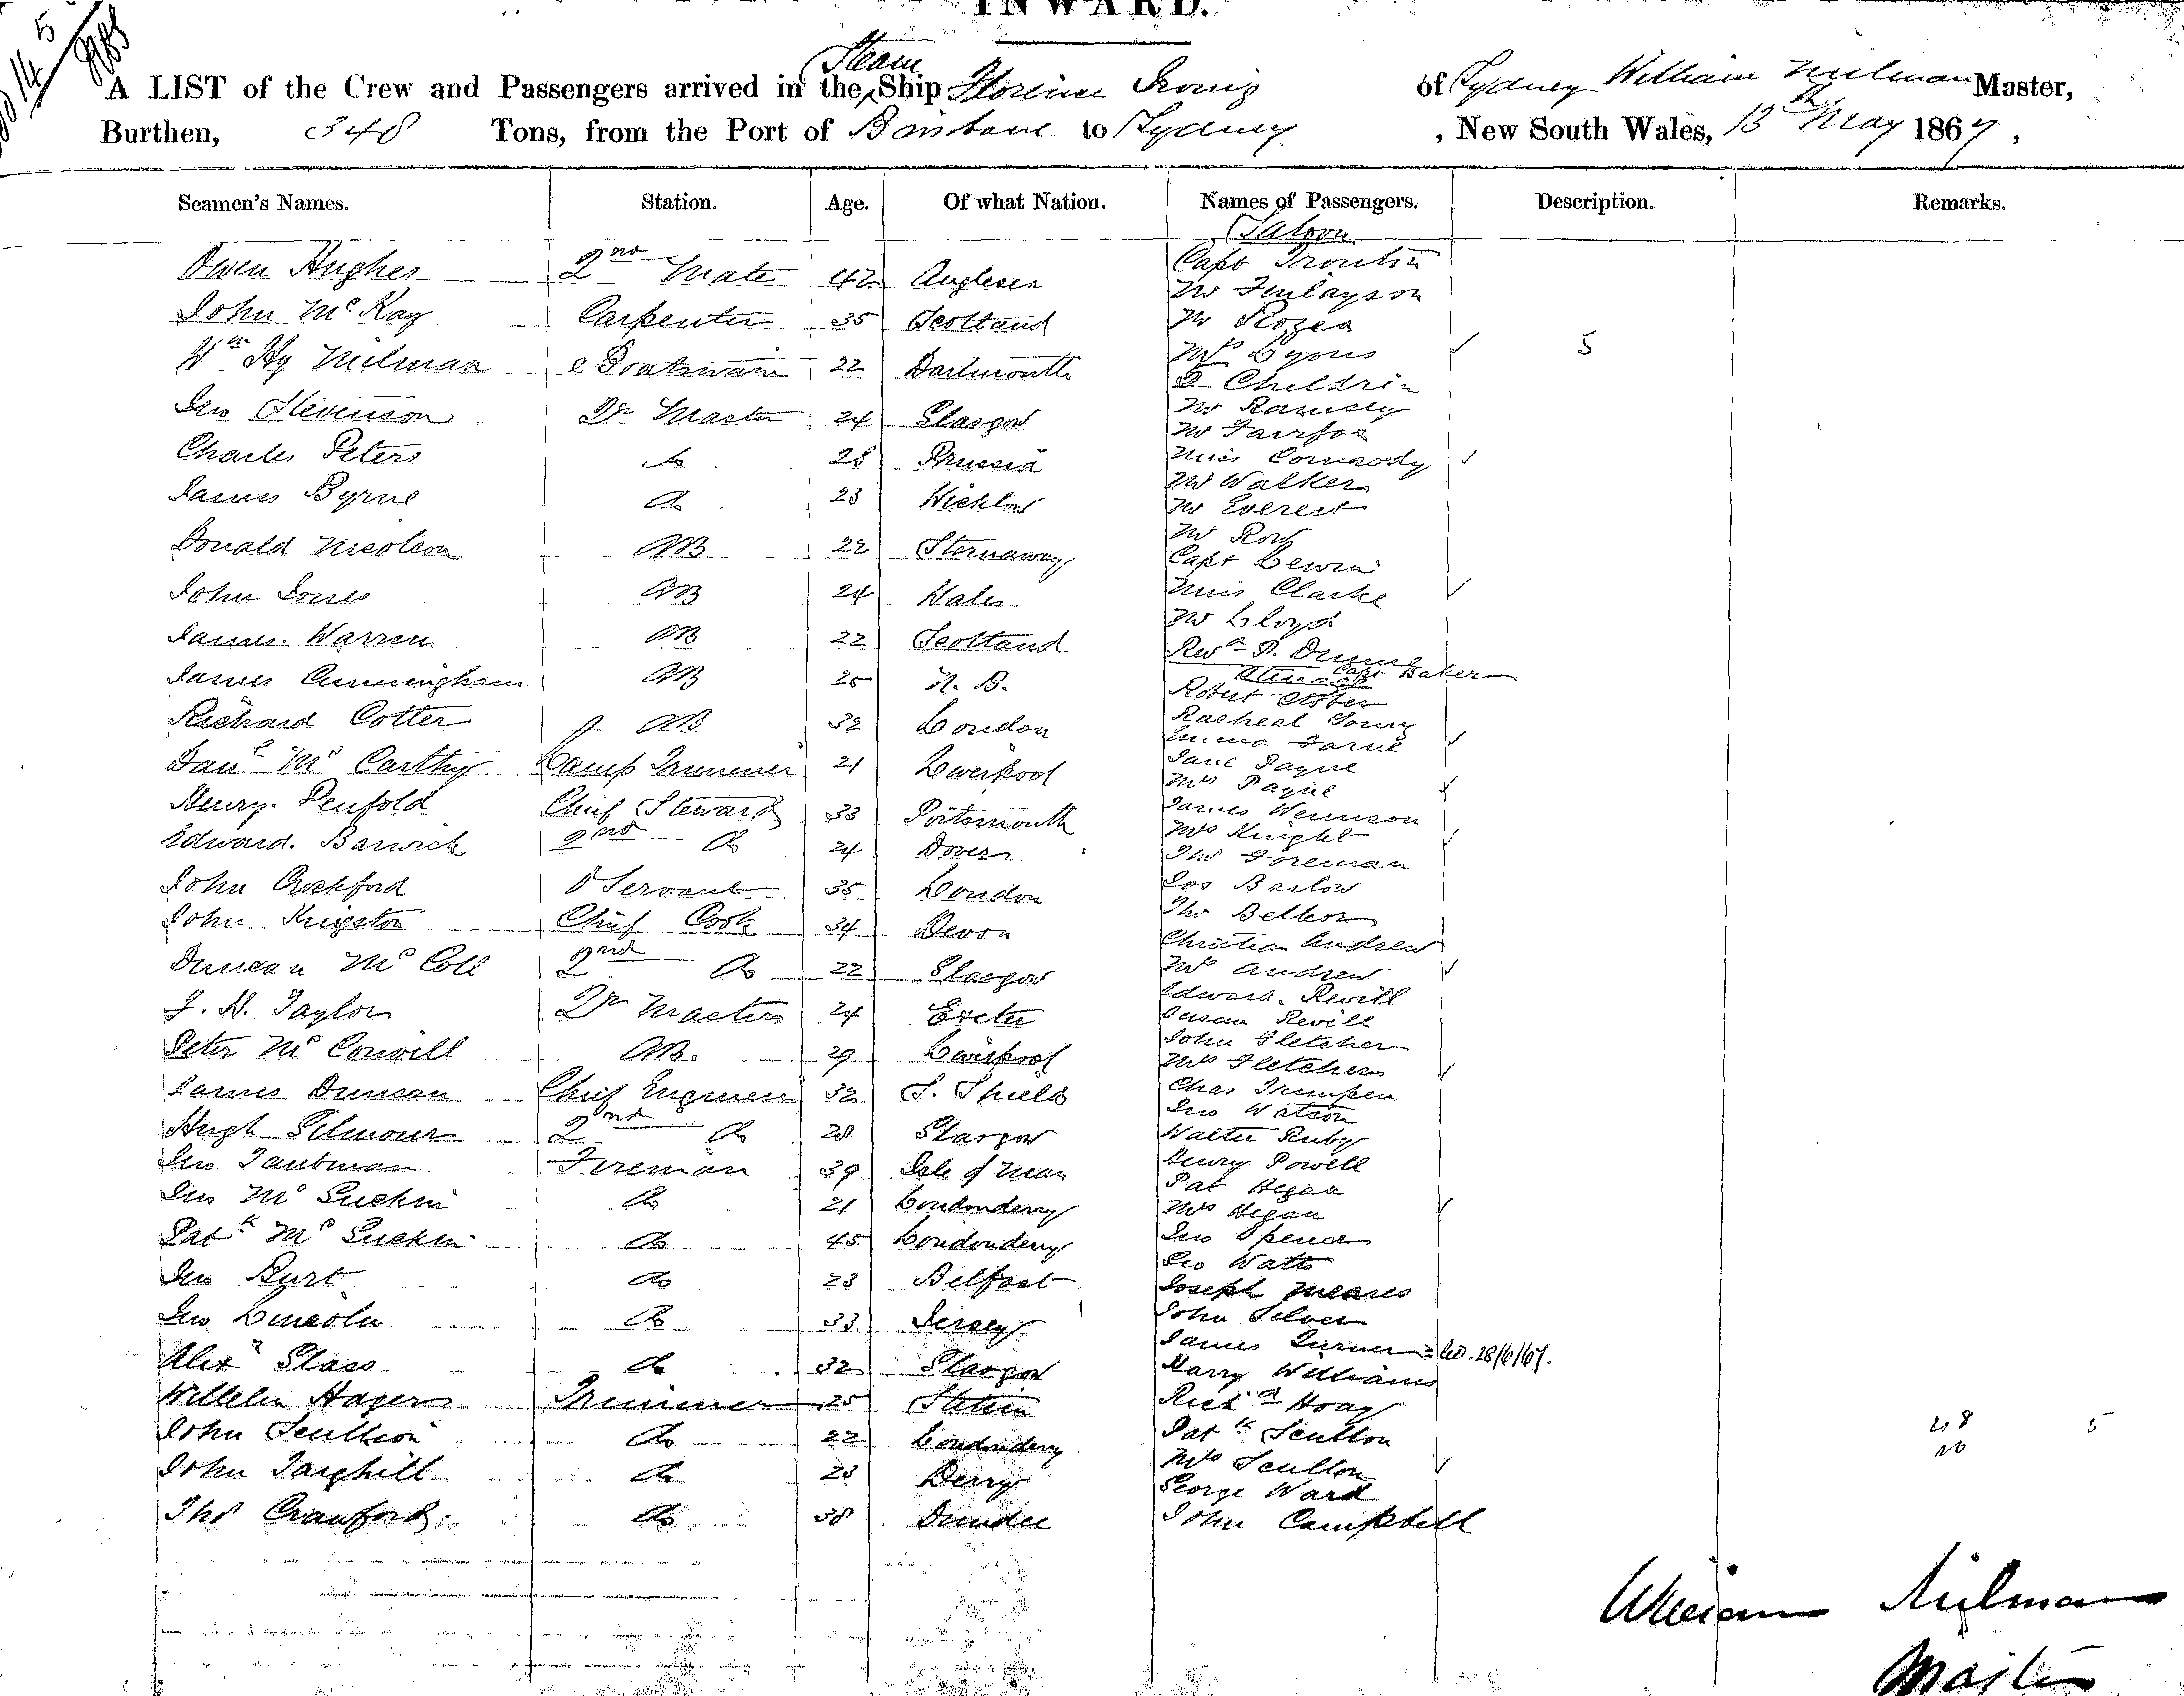 INWARD.
14/5 8985
A LIST of the Crew and Passengers arrived in the Steam Ship Florence Irving of Sydney William Milman Master,
Burthen, 348 Tons, from the Port of Brisbane to Sydney , New South Wales, 13th May 1867,
Seamen's Names. Station. Age. Of what Nation. Names of Passengers. Description. Remarks.
Saloon
Owen Hughes 2nd Mate 42 Anglesea Capt
Mr Finlayson
John McKay Carpenter 35 Scotland Mr
Wm Hy Milman Boatswain 22 Dartmouth Mrs Lyons 5
2 Children
Jno Stevenson Qr Master 24 Glasgow Mr Ramsey
Mr Fairfax
Charles Peters Do 28 Prussia Miss
James Byrne Do 23 Wicklow Mr Walker
Mr Everest
Donald Nicolson AB 22 Stornaway Mr
Capt Lewin
John Jones AB 24 Wales Miss Clarke
Mr Lloyd
James Warren AB 22 Scotland Revd
James Cunningham AB 25 N. B. Capt Baker
Steerage
Robert
Richard Cotter AB 32 London Racheal
Emma
Danl McCarthy Lamp Trimmer 21 Liverpool Jane Payne
Mrs Payne
Henry Penfold Chief Steward 33 Portsmouth James Wennson
Edward Barwick 2nd Do 24 Dover Mrs Knight
Tho Foreman
John Crockford Servant 35 London Jos Barlow
John Kingston Chief Cook 34 Devon Tho
Christian Andrew
Duncan McColl 2nd Do 22 Glasgow Mrs Andrew
J. H. Taylor Qr Master 24 Exeter Edward Revill
Susan Revill
Peter McConvill AB. 29 Liverpool John Fletcher
Mrs Fletcher
James Duncan Chief Engineer 32 S. Shields Chas
Jno Watson
Hugh Gilmour 2nd Do 28 Glasgow Walter Ruby
Jno Taubman Fireman 39 Isle of Man Henry Powell
Pat Hegan
Jno McGuckin Do 21 Londonderry Mrs Hegan
Patk McGuckin Do 45 Londonderry Jno
Geo Watts
Jno Do 23 Belfast Joseph Meares
Jno Lincoln Do 33 Jersey John Silver
James Turner 28/6/67.
Alexr Glass Do 32 Glasgow Harry Williams
Wilhelm Hagen Trimmer 25 Stettin Richd Hoag
John Scullion Do 22 Londonderry Patk Scullon 48 5
Mrs Scullon 10
John Targhill Do 23 Derry George Ward
Tho Crawford Do 38 Dundee John Campbell
William Milman
Master